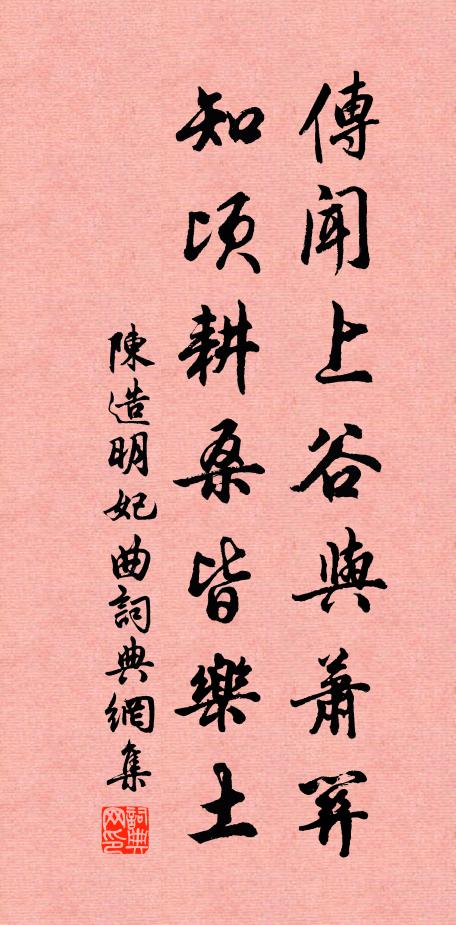 傳聞上谷與蕭關
知頃耕桑皆樂土
陳造明妃曲詞典網集
詞典网印